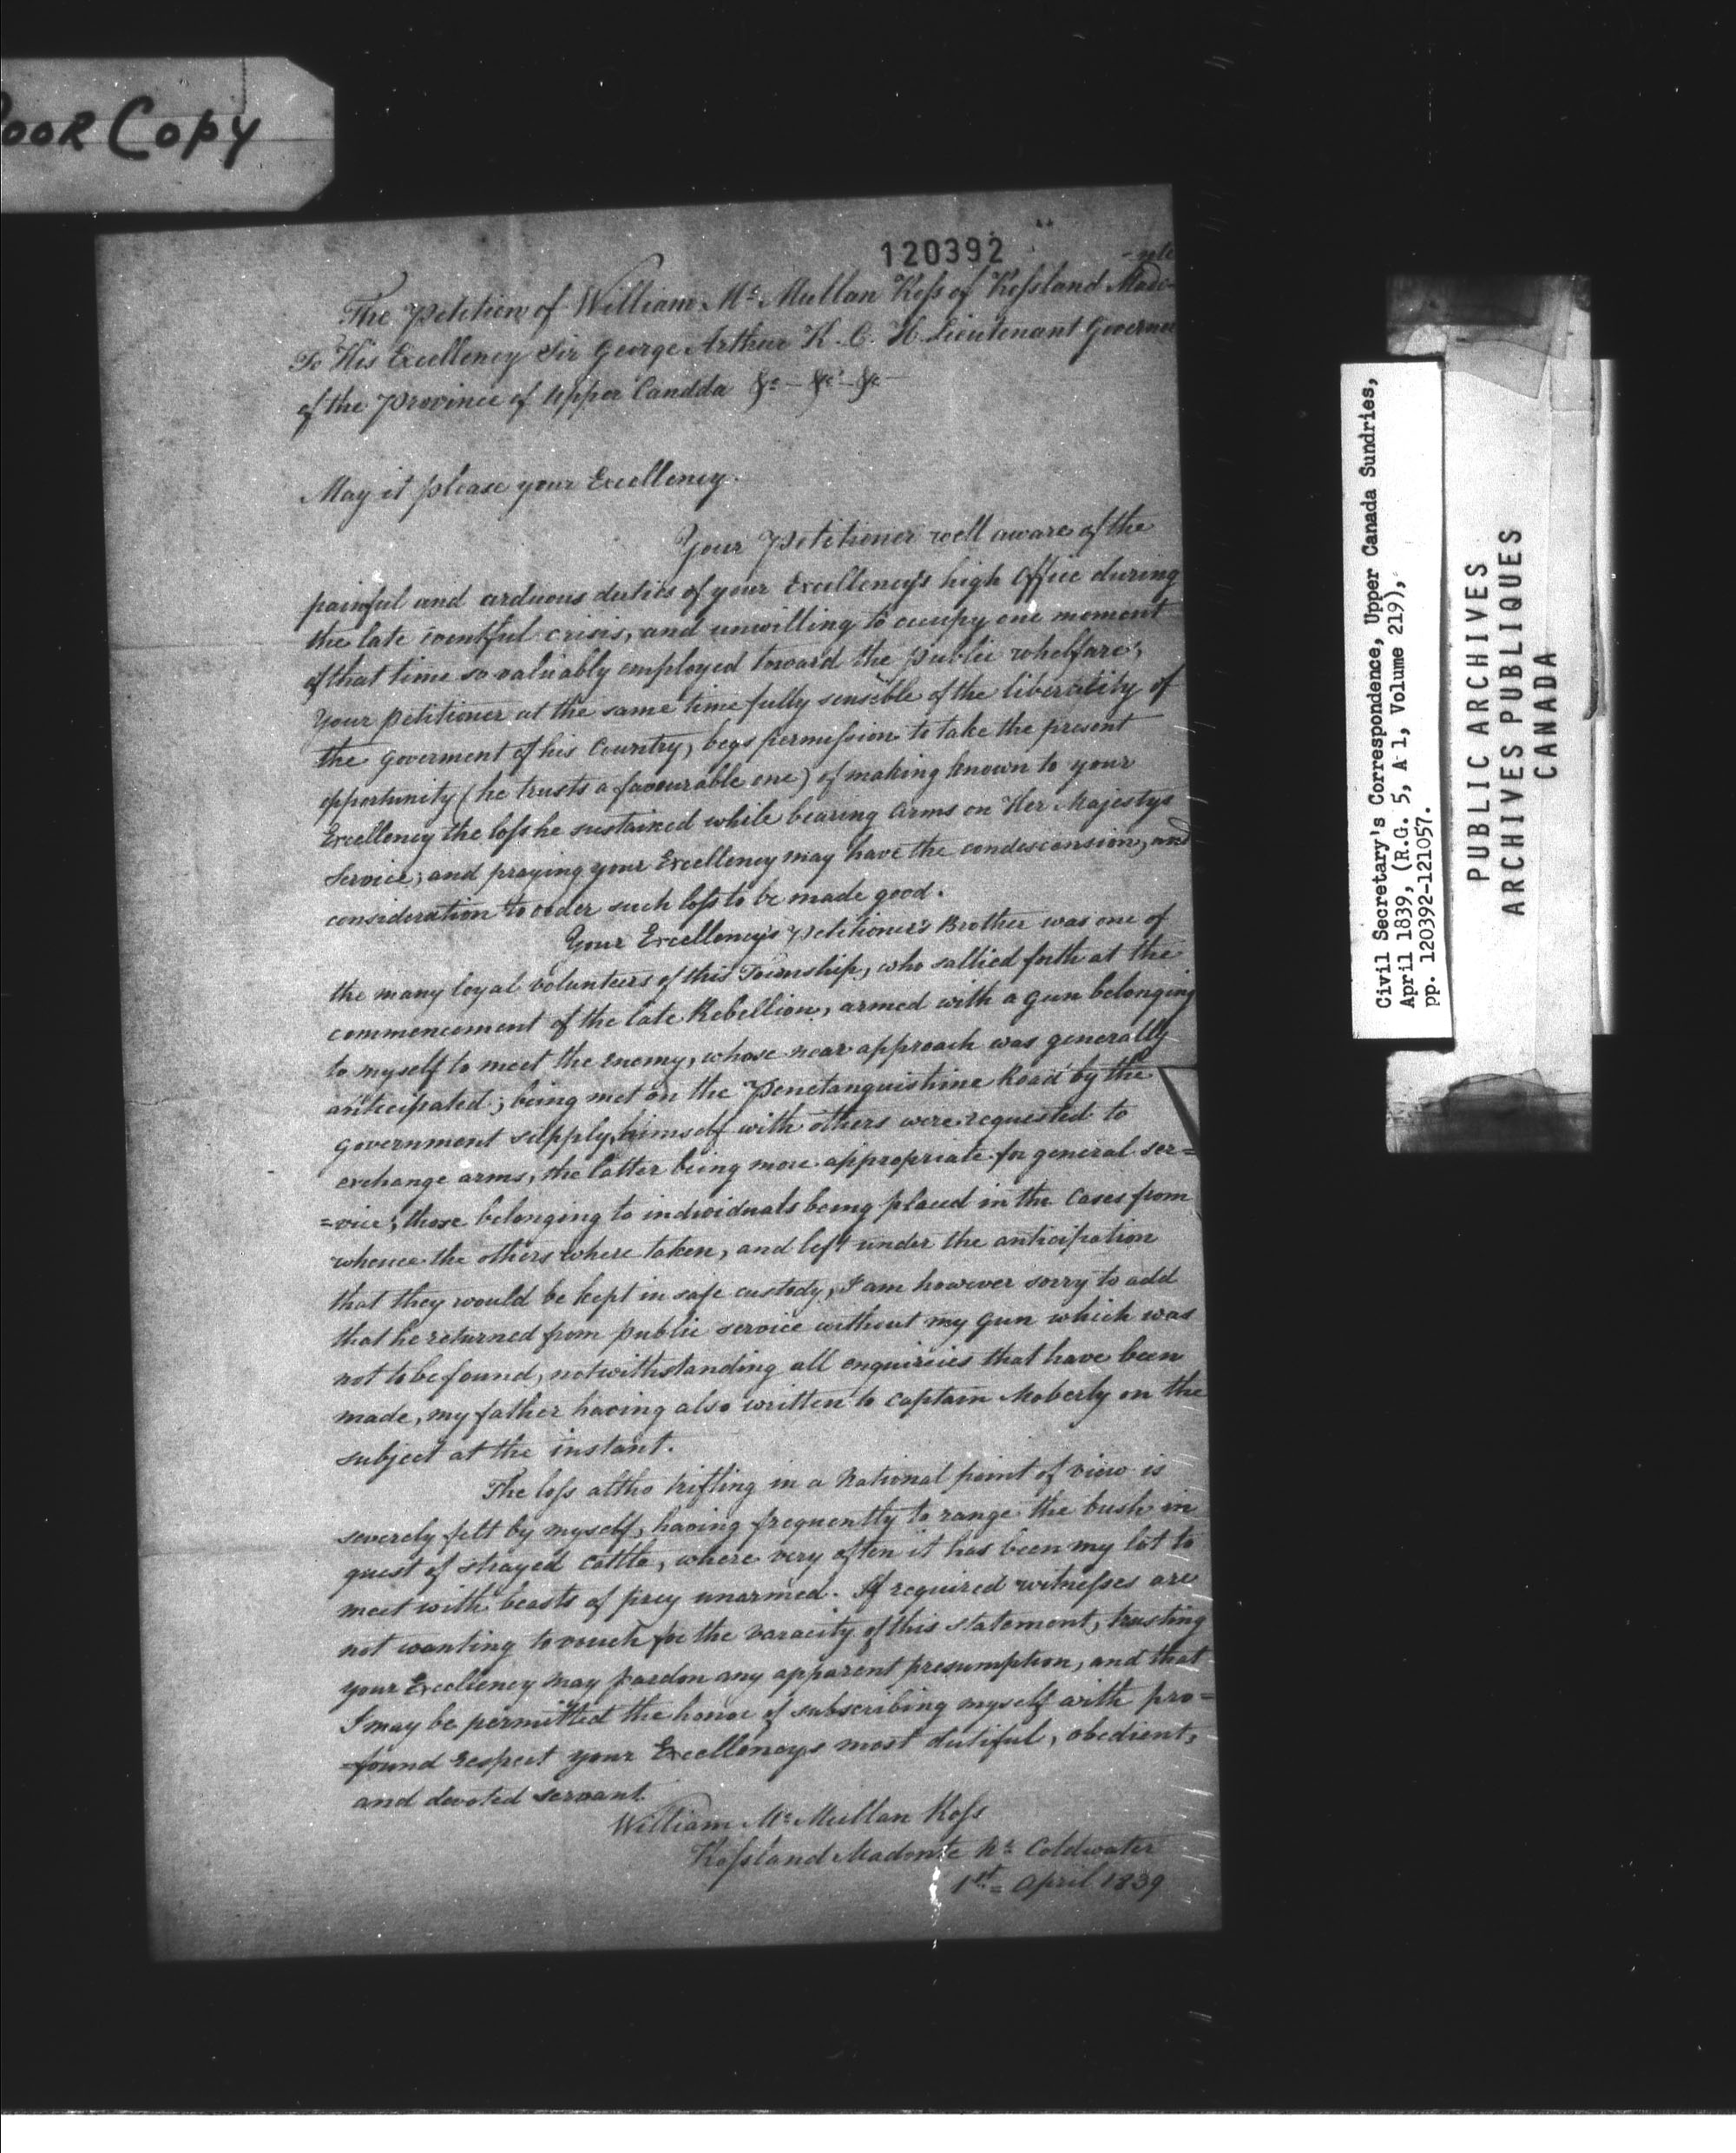 Poor Copy
120392
-nte
The Petition of William Mc Mullan Kefs of Kefsland Mado-
To His Excellency Sir George Arthur K. C. H. Lieutenant Governor
of the Province of Upper Candda &c - &c - &c -
May it please your Excellency.
Your Petitioner well aware of the
painful and arduous duties of your Excellency's high Office during
the late eventful crisis, and unwilling to occupy one moment
of that time so valuably employed toward the Public whelfare,
Your petitioner at the same time fully sensible of the liberality of
the Goverment of his Country, begs permifsion to take the present
opportunity (he trusts a favourable one) of making known to your
Excellency the lofs he sustained while bearing Arms on Her Majestys
Service; and praying your Excellency may have the condescension, and
consideration to order such lofs to be made good.
Your Excellency's Petitioner's Brother was one of
the many loyal volunteers of this Township, who sallied forth at the
commencement of the late Rebellion, armed with a gun belonging
to myself to meet the enemy, whose near approach was generally
anticipated; being met on the Penetanguishine Road by the
government supply, himself with others were requested to
exchange arms, the latter being more appropriate for general ser=
=vice; those belonging to individuals being placed in the Cases from
whence the others where taken, and left under the anticipation
that they would be kept in safe custody, I am however sorry to add
that he returned from public service without my gun which was
not to be found, notwithstanding all enquiries that have been
made, my father having also written to Captain Moberly on the
subject at the instant.
The lofs altho trifling in a National point of view is
severely felt by myself, having frequently to range the bush in
quest of strayed cattle, where very often it has been my lot to
meet with beasts of prey unarmed. If required witnefses are
not wanting to vouch for the varacity of this statement, trusting
your Excellency may pardon any apparent presumption, and that
I may be permitted the honor of subscribing myself with pro=
=found respect your Excellencys most dutiful, obedient,
and devoted servant.
William Mc Mullan Kefs
Kefsland Madonte Nr Coldwater
1st= April 1839
Civil Secretary's Correspondence, Upper Canada Sundries,
April 1839, (R.G. 5, A 1, Volume 219),
pp. 120392-121057.
PUBLIC ARCHIVES
ARCHIVES PUBLIQUES
CANADA